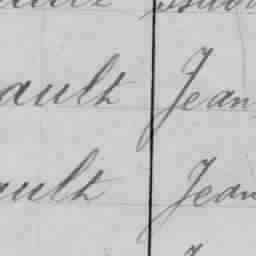 ault Jean
ault Jean